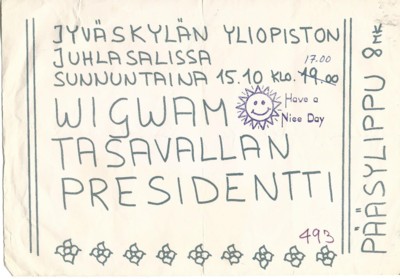 JYVÄSKYLÄN YLIOPISTON
JUHLASALISSA
17.00
SUNNUNTAINA 15.10 KLO. 19.00
WIGWAM
Have a
Nice Day
TASAVALLAN
PRESIDENTTI
493
PÄÄSYLIPPU 8 MK